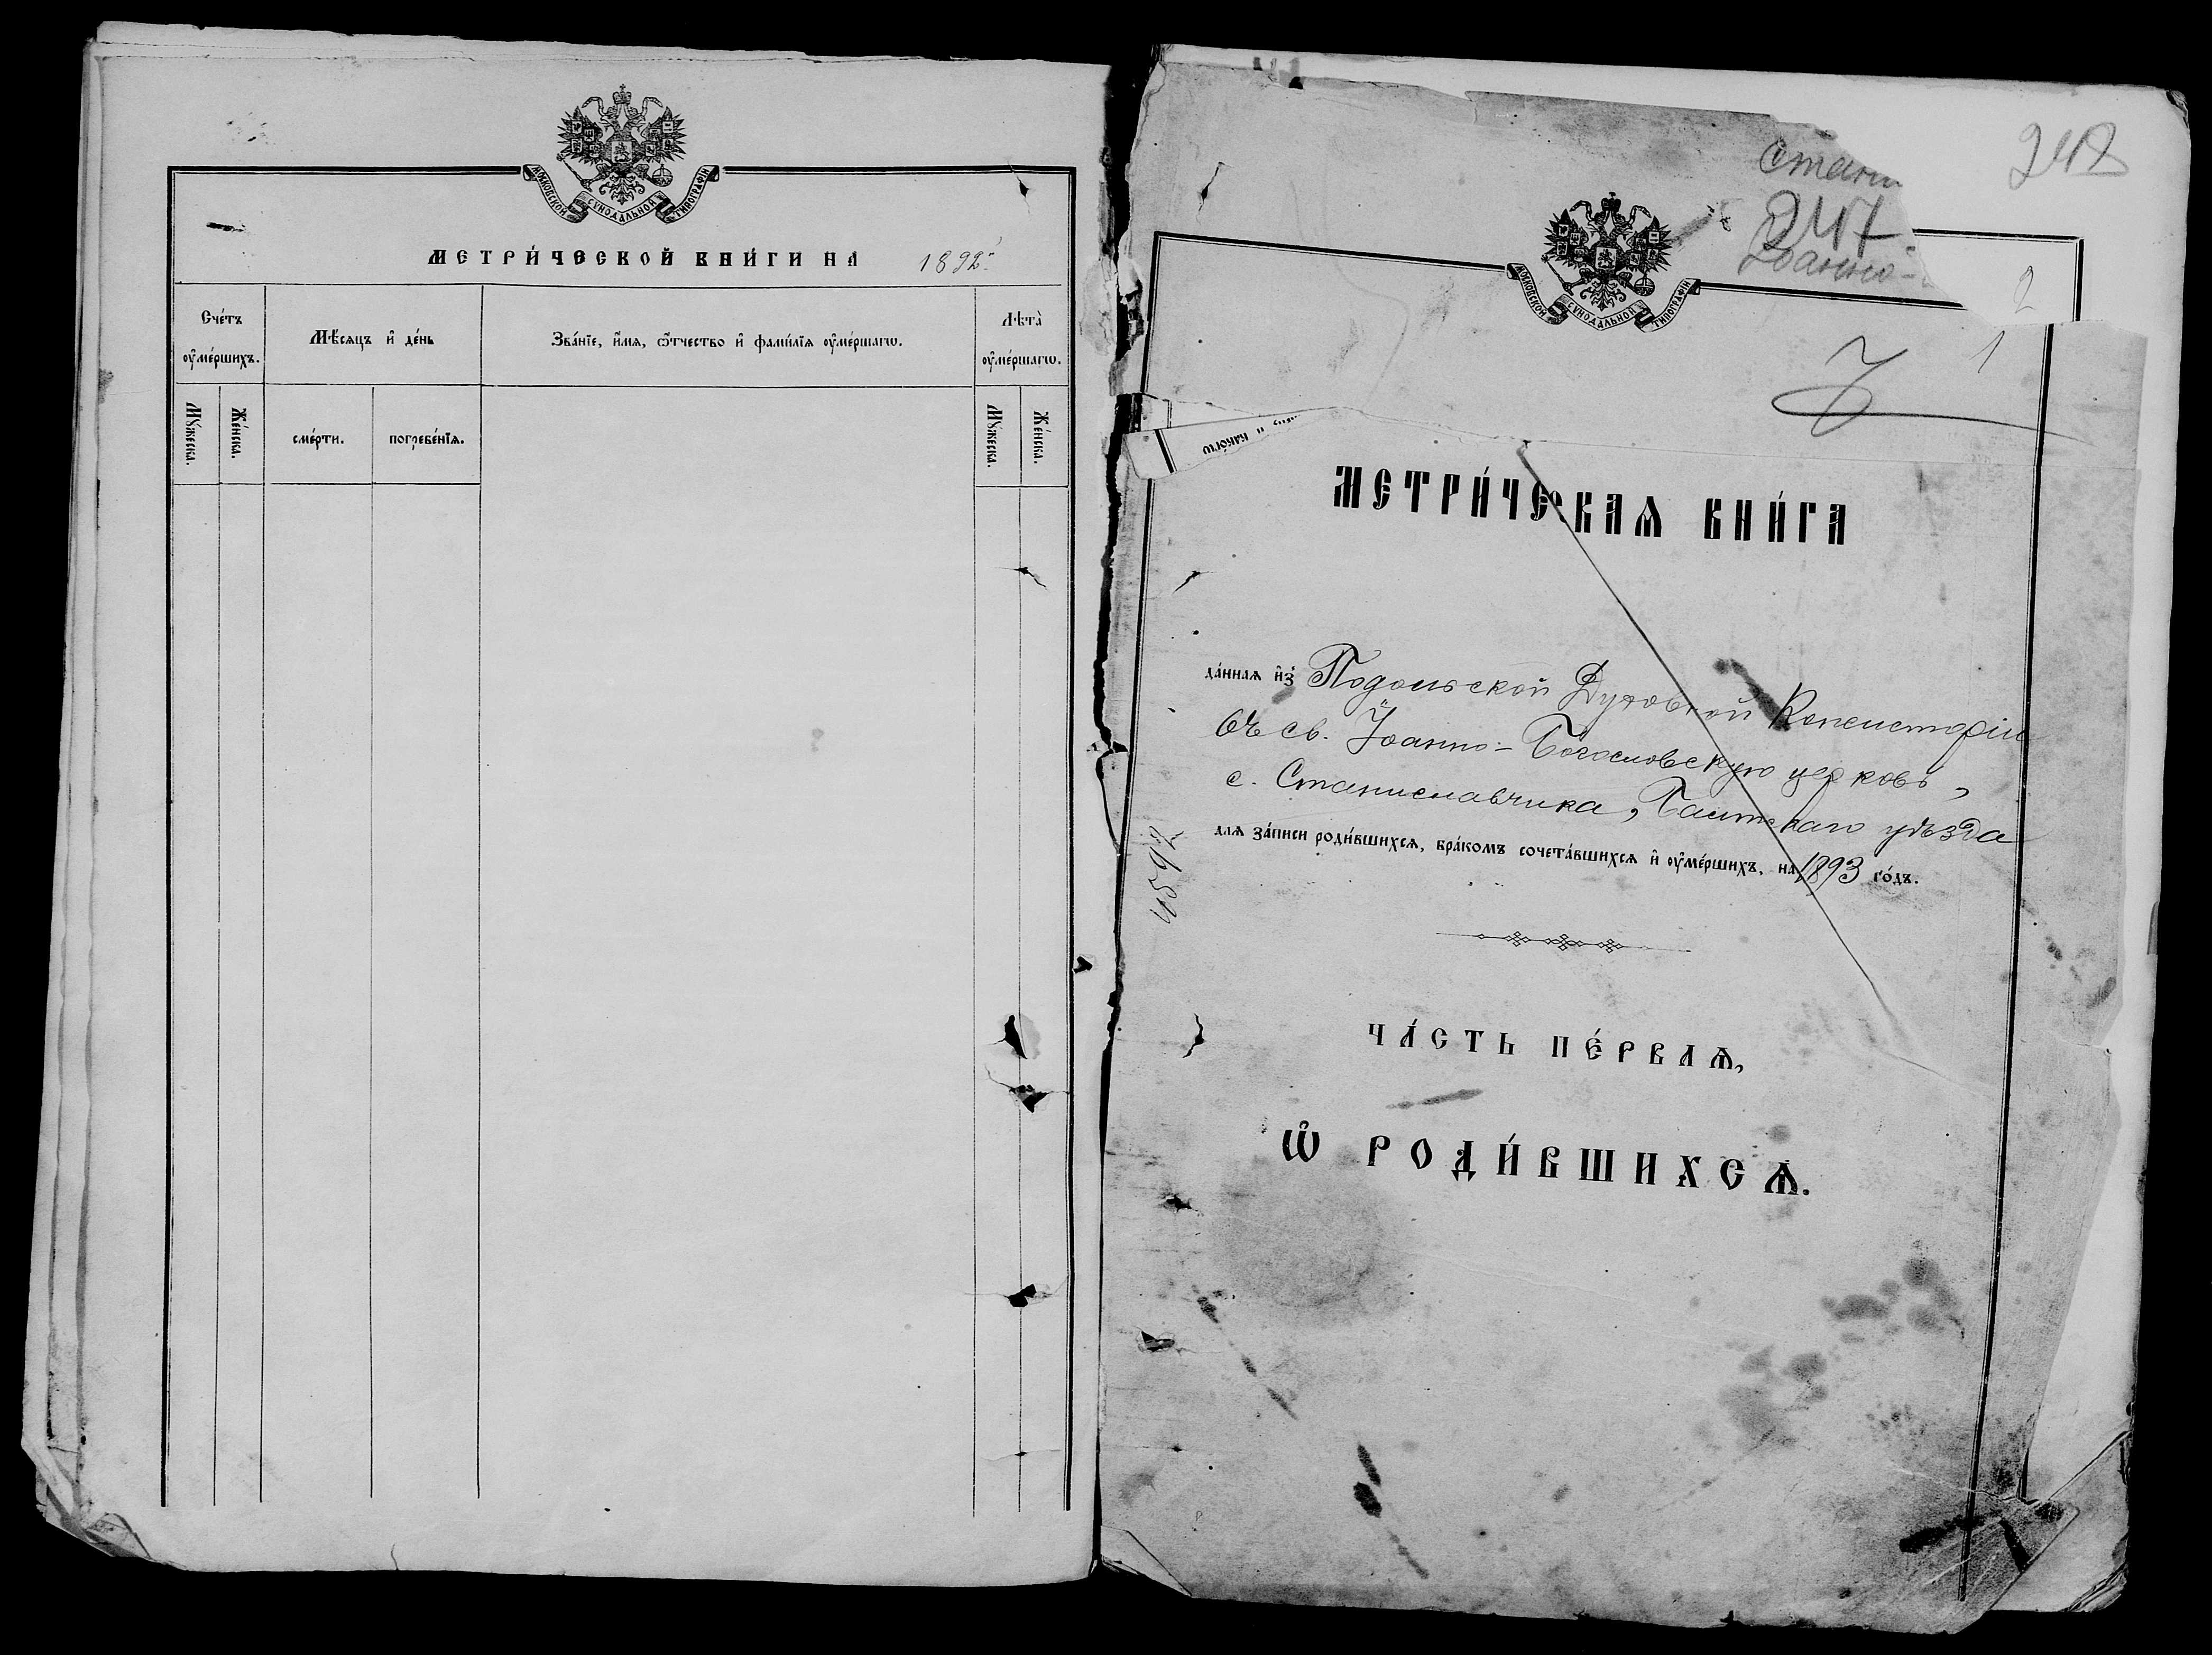 МОСКОВСКОЙ СѴНОДАЛЬНОЙ ТИПОГРАФІИ
МЕТРИ́ЧЕСКОЙ КНИ́ГИ НА 1892 г.
Сче́тъ ᲂу҆ме́ршихъ.
Мѣ́сяцъ и҆ де́нь
Зва́нїе, и҆́мѧ, ѻ҆́тчество и҆ фами́лїѧ ᲂу҆ме́ршагѡ.
Лѣ́та ᲂу҆ме́ршагѡ.
Мꙋ́жеска.
Же́нска.
сме́рти.
погребе́нїѧ.
Мꙋ́жеска.
Же́нска.
248
Стани
247
Іоанно-
МОСКОВСКОЙ СѴНОДАЛЬНОЙ ТИПОГРАФІИ
2
1
какогѡ
МЕТРИ́ЧЕСКАѦ КНИ́ГА
да́ннаѧ и҆з̾ Подольской Духовной Консисторіи
въ св. Іоанно-Богословскую церковь,
с. Станиславчика, Балтскаго уѣзда
длѧ за́писи роди́вшихсѧ, бра́комъ сочета́вшихсѧ и҆ ᲂу҆ме́ршихъ, на 1893 го́дъ.
4592
ЧА́СТЬ ПЕ́РВАѦ,
Ѡ҆ РОДИ́ВШИХСѦ.